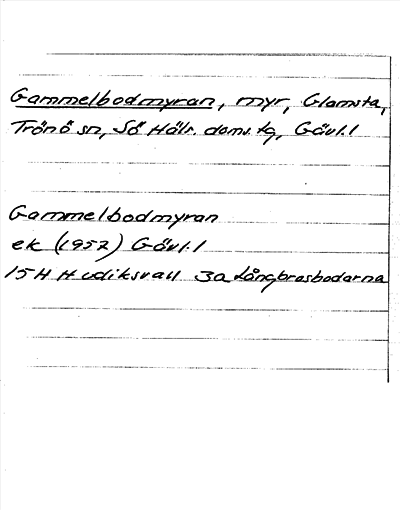 Gammelbodmyran, myr, Glamsta,
Trönö sn, Sö Häls. doms.tg, Gävl.l
Gammelbodmyran
ek (1957) Gävl.l
15H Hudiksvall 3a Långbrosbodarna